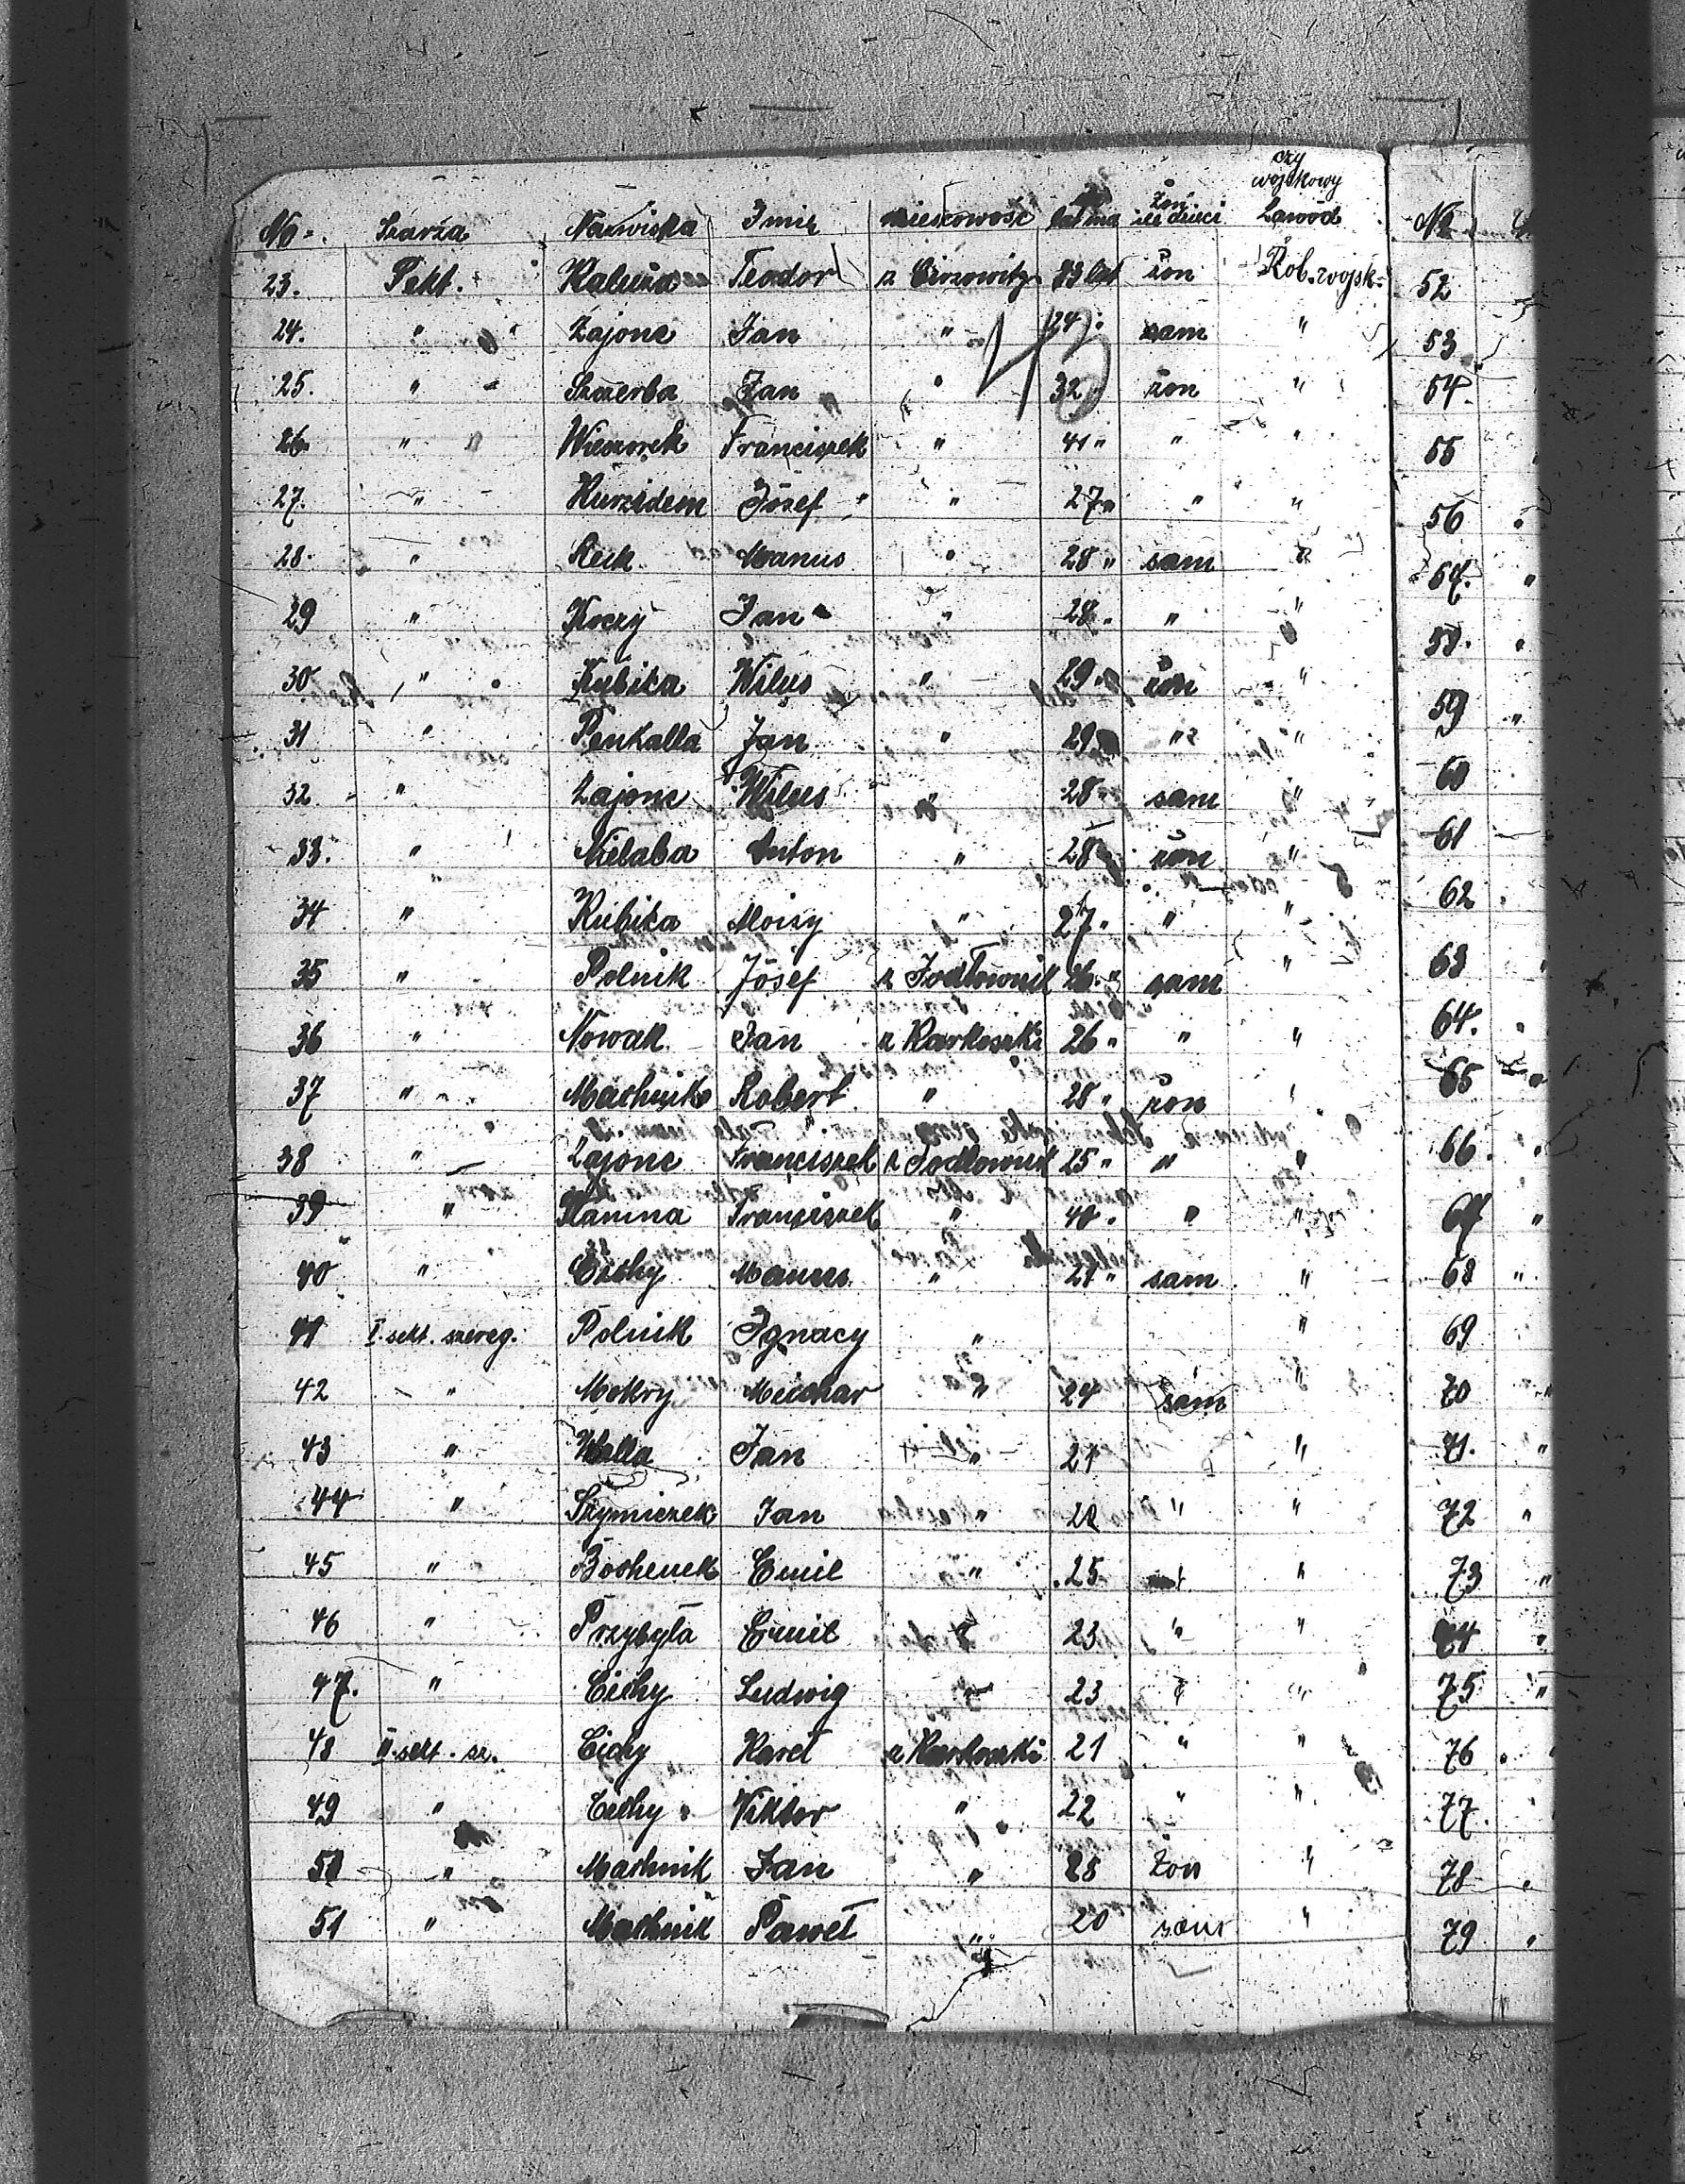 czy
wojskowy
No Szarża Nazwiska Imię mieskowość lat ma żon. ile dzieci Zawód
23. Pekt. Kaluża Teodor z Cirsowitz 33 lat żon Rob. wojsk.
24. " Zajonc Jan " 24 " sam "
25. " Szczerba Jan " 32 " żon "
26. " Wieczorek Franciszek " 41 " " "
27. " Kurzidem Józef " 27 " " "
28. " Reck Manus " 28 " sam "
29 " Koczy Jan " 28 " " "
30 " Kubica Wilus " 29 " żon "
31 " Penkalla Jan " 29 " " "
32. " Zajonc Wilus " 28 " sam "
33. " Nielaba Anton " 28 " żon "
34 " Kubica Aloisy " 27 " " "
35 " Polnik Józef z Jodłownik 26 " sam "
36 " Nowak Jan z Karkoszki 26 " " "
37 " Machnik Robert " 28 " żon "
38 " Zajonc Franciszek z Jodłownik 25 " " "
39 " Hanina Franciszek " 40 " " "
40 " Cichy Manus " 21 " sam "
41 I. sekt. szereg. Polnik Ignacy " "
42 " Mokry Meichar " 24 sam "
43 " Walla Jan " 21 "
44 " Szymiczek Jan " 22 " "
45 " Bochenek Emil " 25 "
46 " Przybyła Emil " 23 " "
47. " Cichy Ludwig " 23 " "
48 II. sekt. sz. Cichy Karol z Karkoszki 21 " "
49 " Cichy Viktor " 22 " "
50 " Machnik Jan " 28 żon "
51 " Machnik Paweł " 20 sam "
No
52
53
54
55
56 "
57. "
58. "
59 "
60
61
62
63 "
64. "
65 "
66 "
67 "
68 "
69
70 "
71. "
72 "
73 "
74 "
75 "
76 "
77.
78 "
79 "